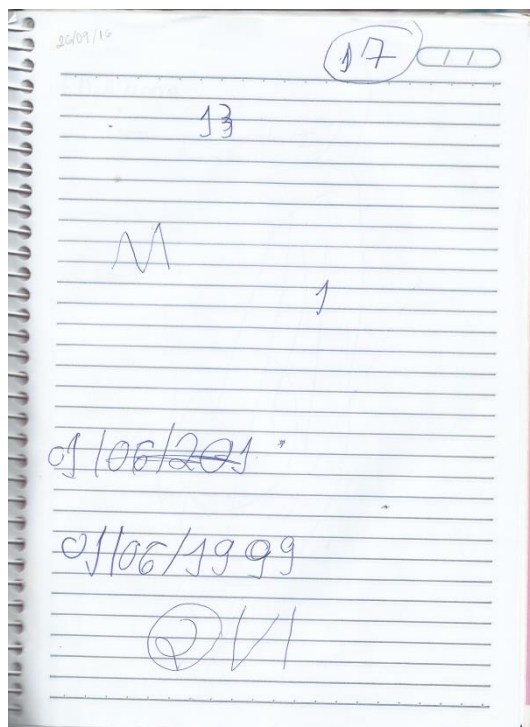 26/09/16
17
13
M
1
01/06/201
01/06/1999
2VI